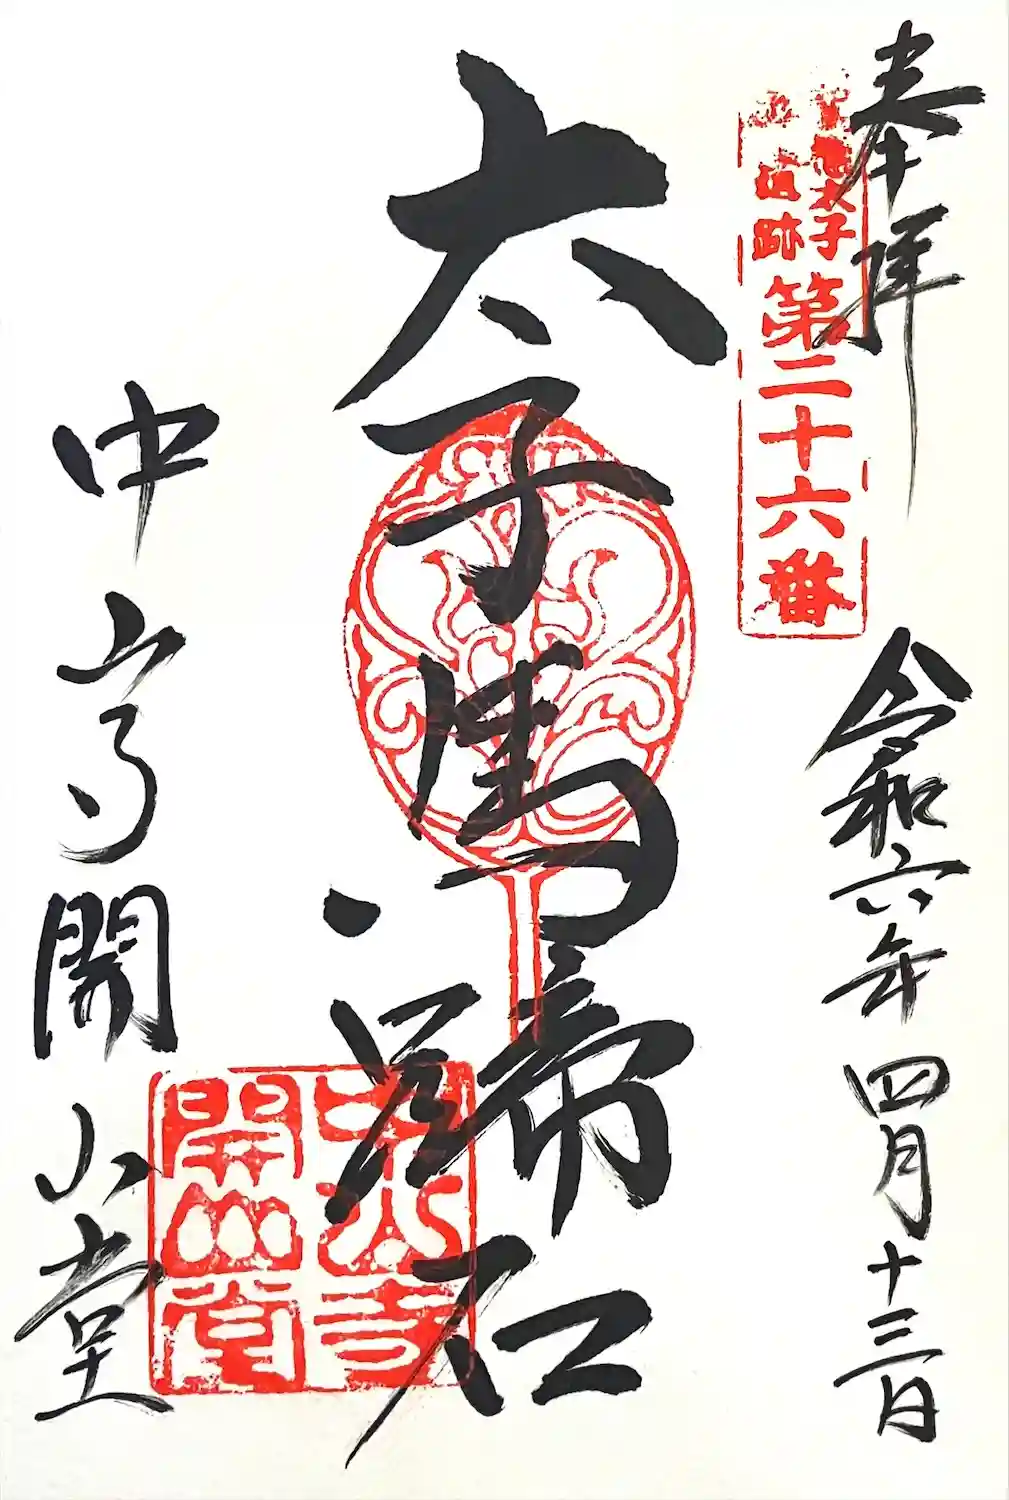 奉拝
聖徳太子
御遺跡
第二十六番
令和六年 四月十三日
太子馬蹄石
中山寺開山堂
中山寺
開山堂